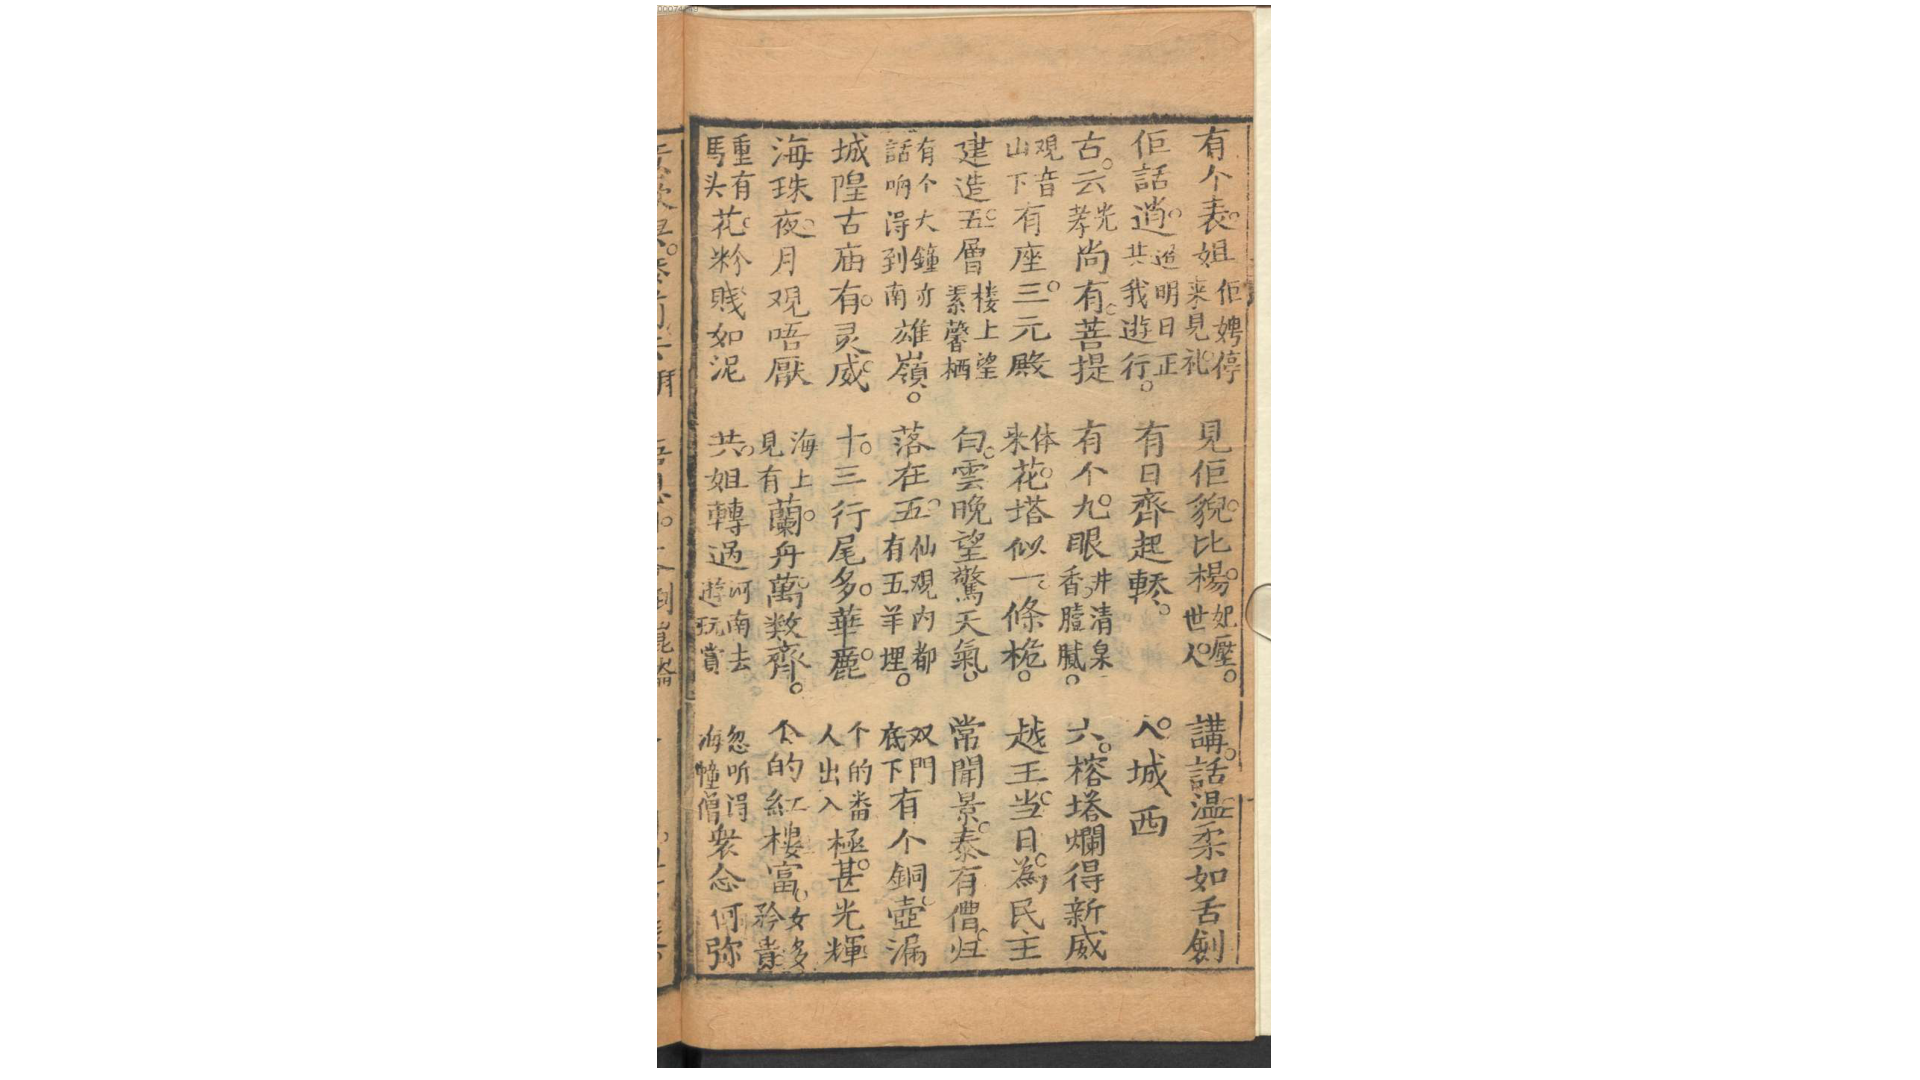 有个表姐佢娉停来見礼 見佢貌比楊妃壓世人 講話温柔如舌劍
佢話逍遥明日正共我遊行 有日齊起轎 入城西
古云光孝尚有菩提 有个九眼井清泉香膻膩 六榕塔爛得新威
观音山下有座三元殿 体来花塔似一條桅 越王当日為民主
建造五層楼上望素馨栖 白雲晚望驚天氣 常聞景泰有僧归
有个大鐘亦話响得到南雄嶺 落在五仙观内都有五羊埋 双門底下有个銅壺漏
城隍古庙有灵威 十三行尾多華麗 个的番人出入極甚光輝
海珠夜月观唔厭 海上見有蘭舟萬数齊 个的紅楼富女多矜貴
重有馬头花粉賤如泥 共姐轉過河南去遊玩賞 忽听得海幢僧衆念何弥